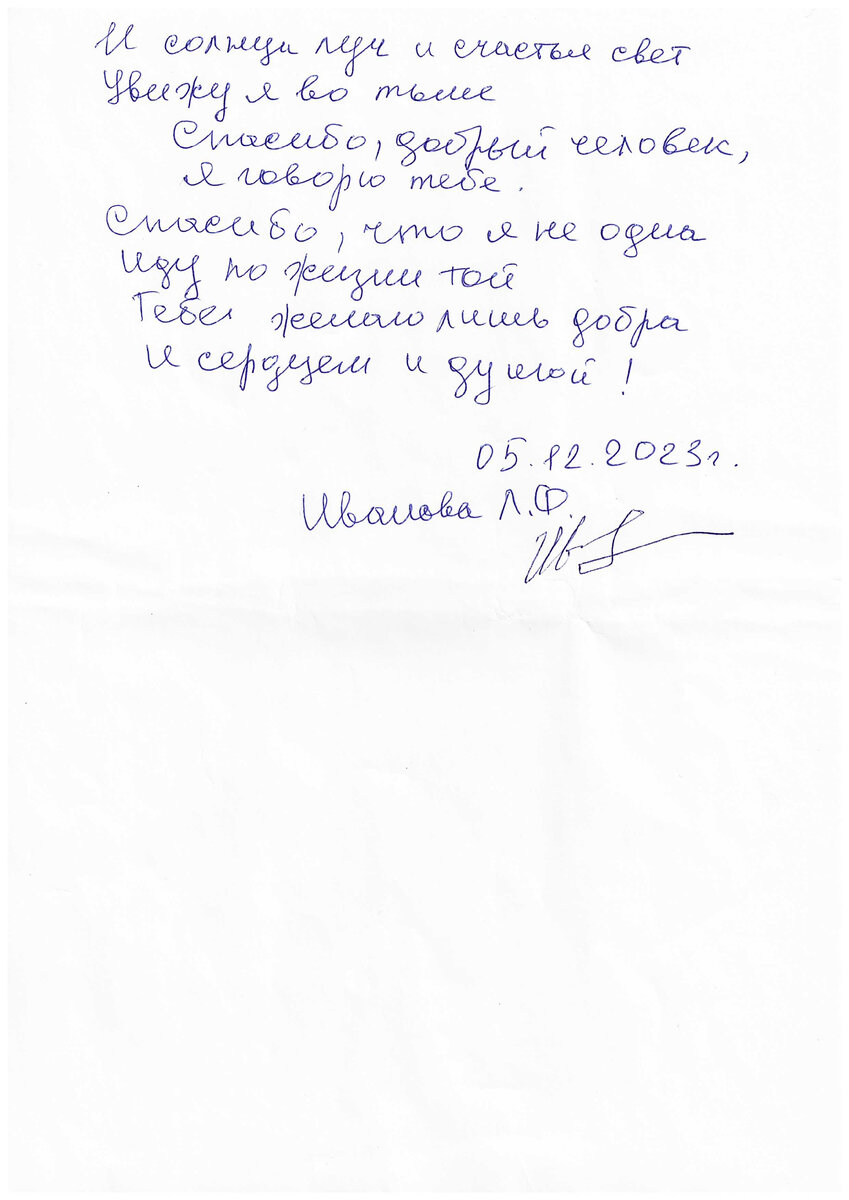 И солнца луч и счастья свет
Увижу я во тьме
Спасибо, добрый человек,
я говорю тебе.
Спасибо, что я не одна
Иду по жизни той
Тебе желаю лишь добра
И сердцем и душой!
05.12.2023г.
Иванова Л.Ф.